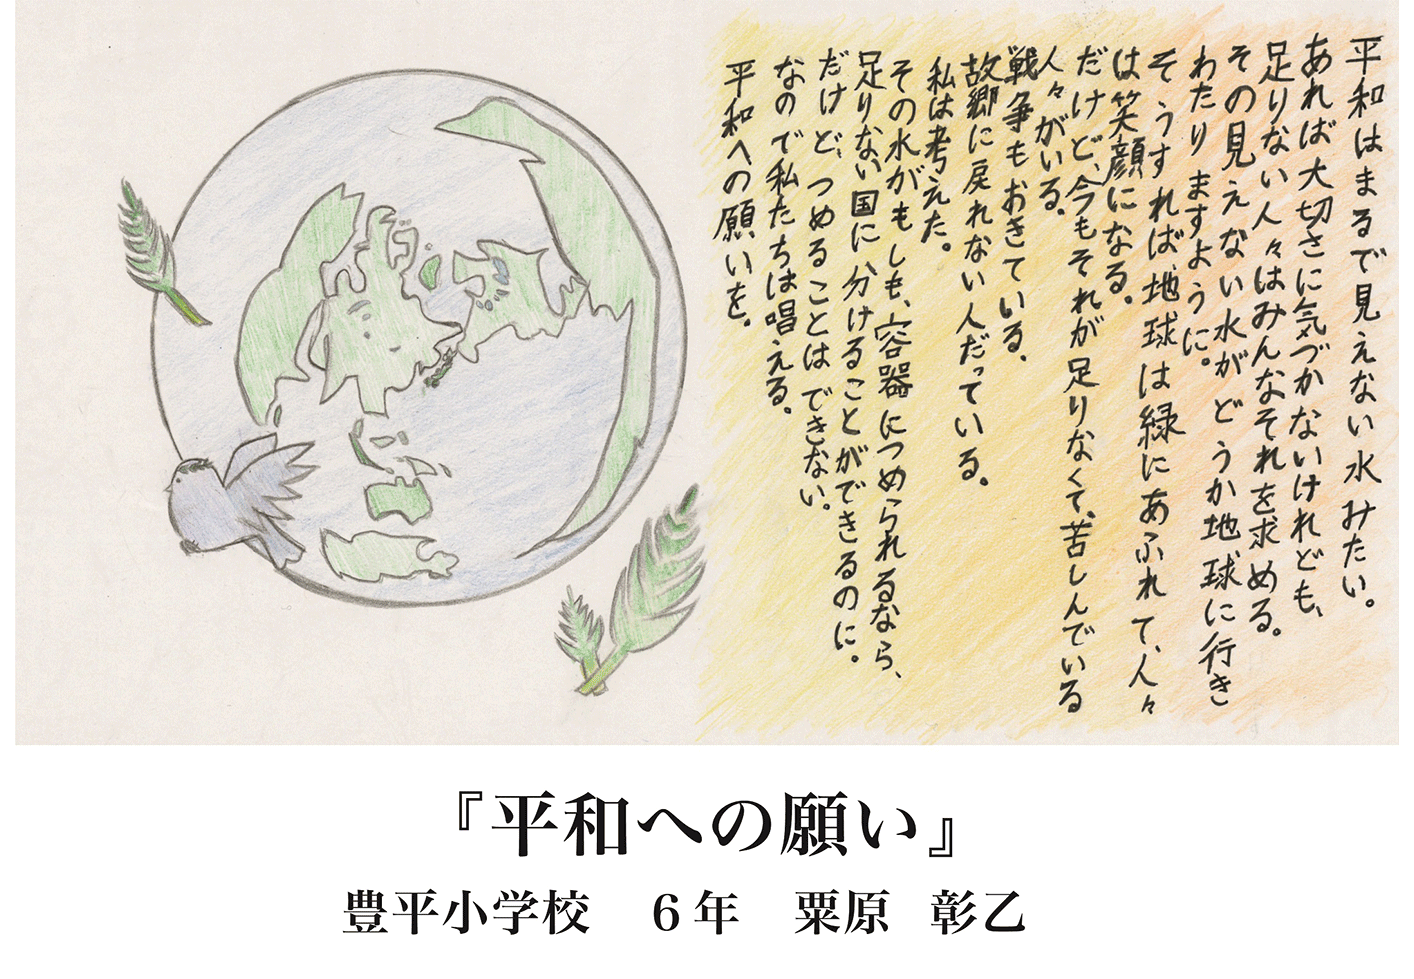 平和はまるで見えない水みたい。
あれば大切さに気づかないけれども、
足りない人々はみんなそれを求める。
その見えない水がどうか地球に行き
わたりますように。
そうすれば地球は緑にあふれて、人々
は笑顔になる。
だけど、今もそれが足りなくて、苦しんでいる
人々がいる。
戦争もおきている、
故郷に戻れない人だっている。
私は考えた。
その水がもしも、容器につめられるなら、
足りない国に分けることができるのに。
だけど、つめることはできない。
なので私たちは唱える、
平和への願いを。
『平和への願い』
豊平小学校　６年　粟原　彰乙